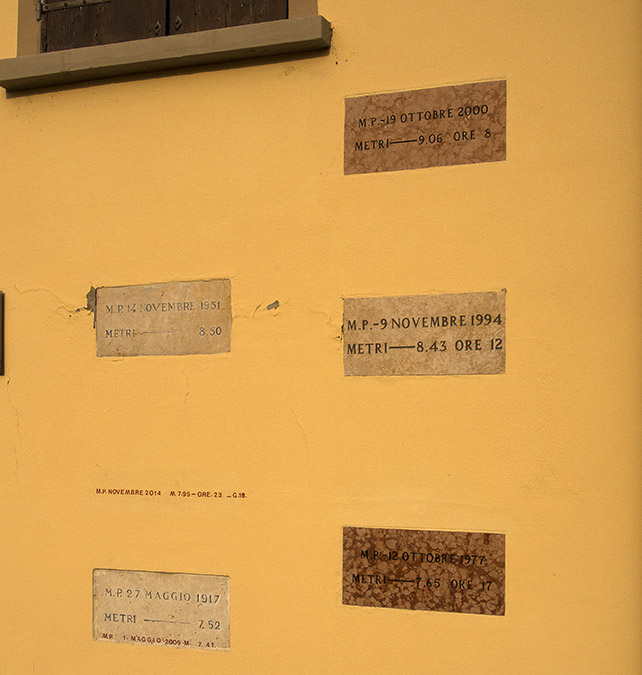 M.P.-19 OTTOBRE 2000
METRI—9.06 ORE 8
M.P. 14 NOVEMBRE 1951
METRI — 8.50
M.P.-9 NOVEMBRE 1994
METRI—8.43 ORE 12
M.P. NOVEMBRE 2014 M. 7.95 — ORE. 23 — G.18.
M.P.-12 OTTOBRE 1977
METRI—7.65 ORE 17
M.P. 27 MAGGIO 1917
METRI — 7.52
M.P. 1- MAGGIO 2009 M. 7.41